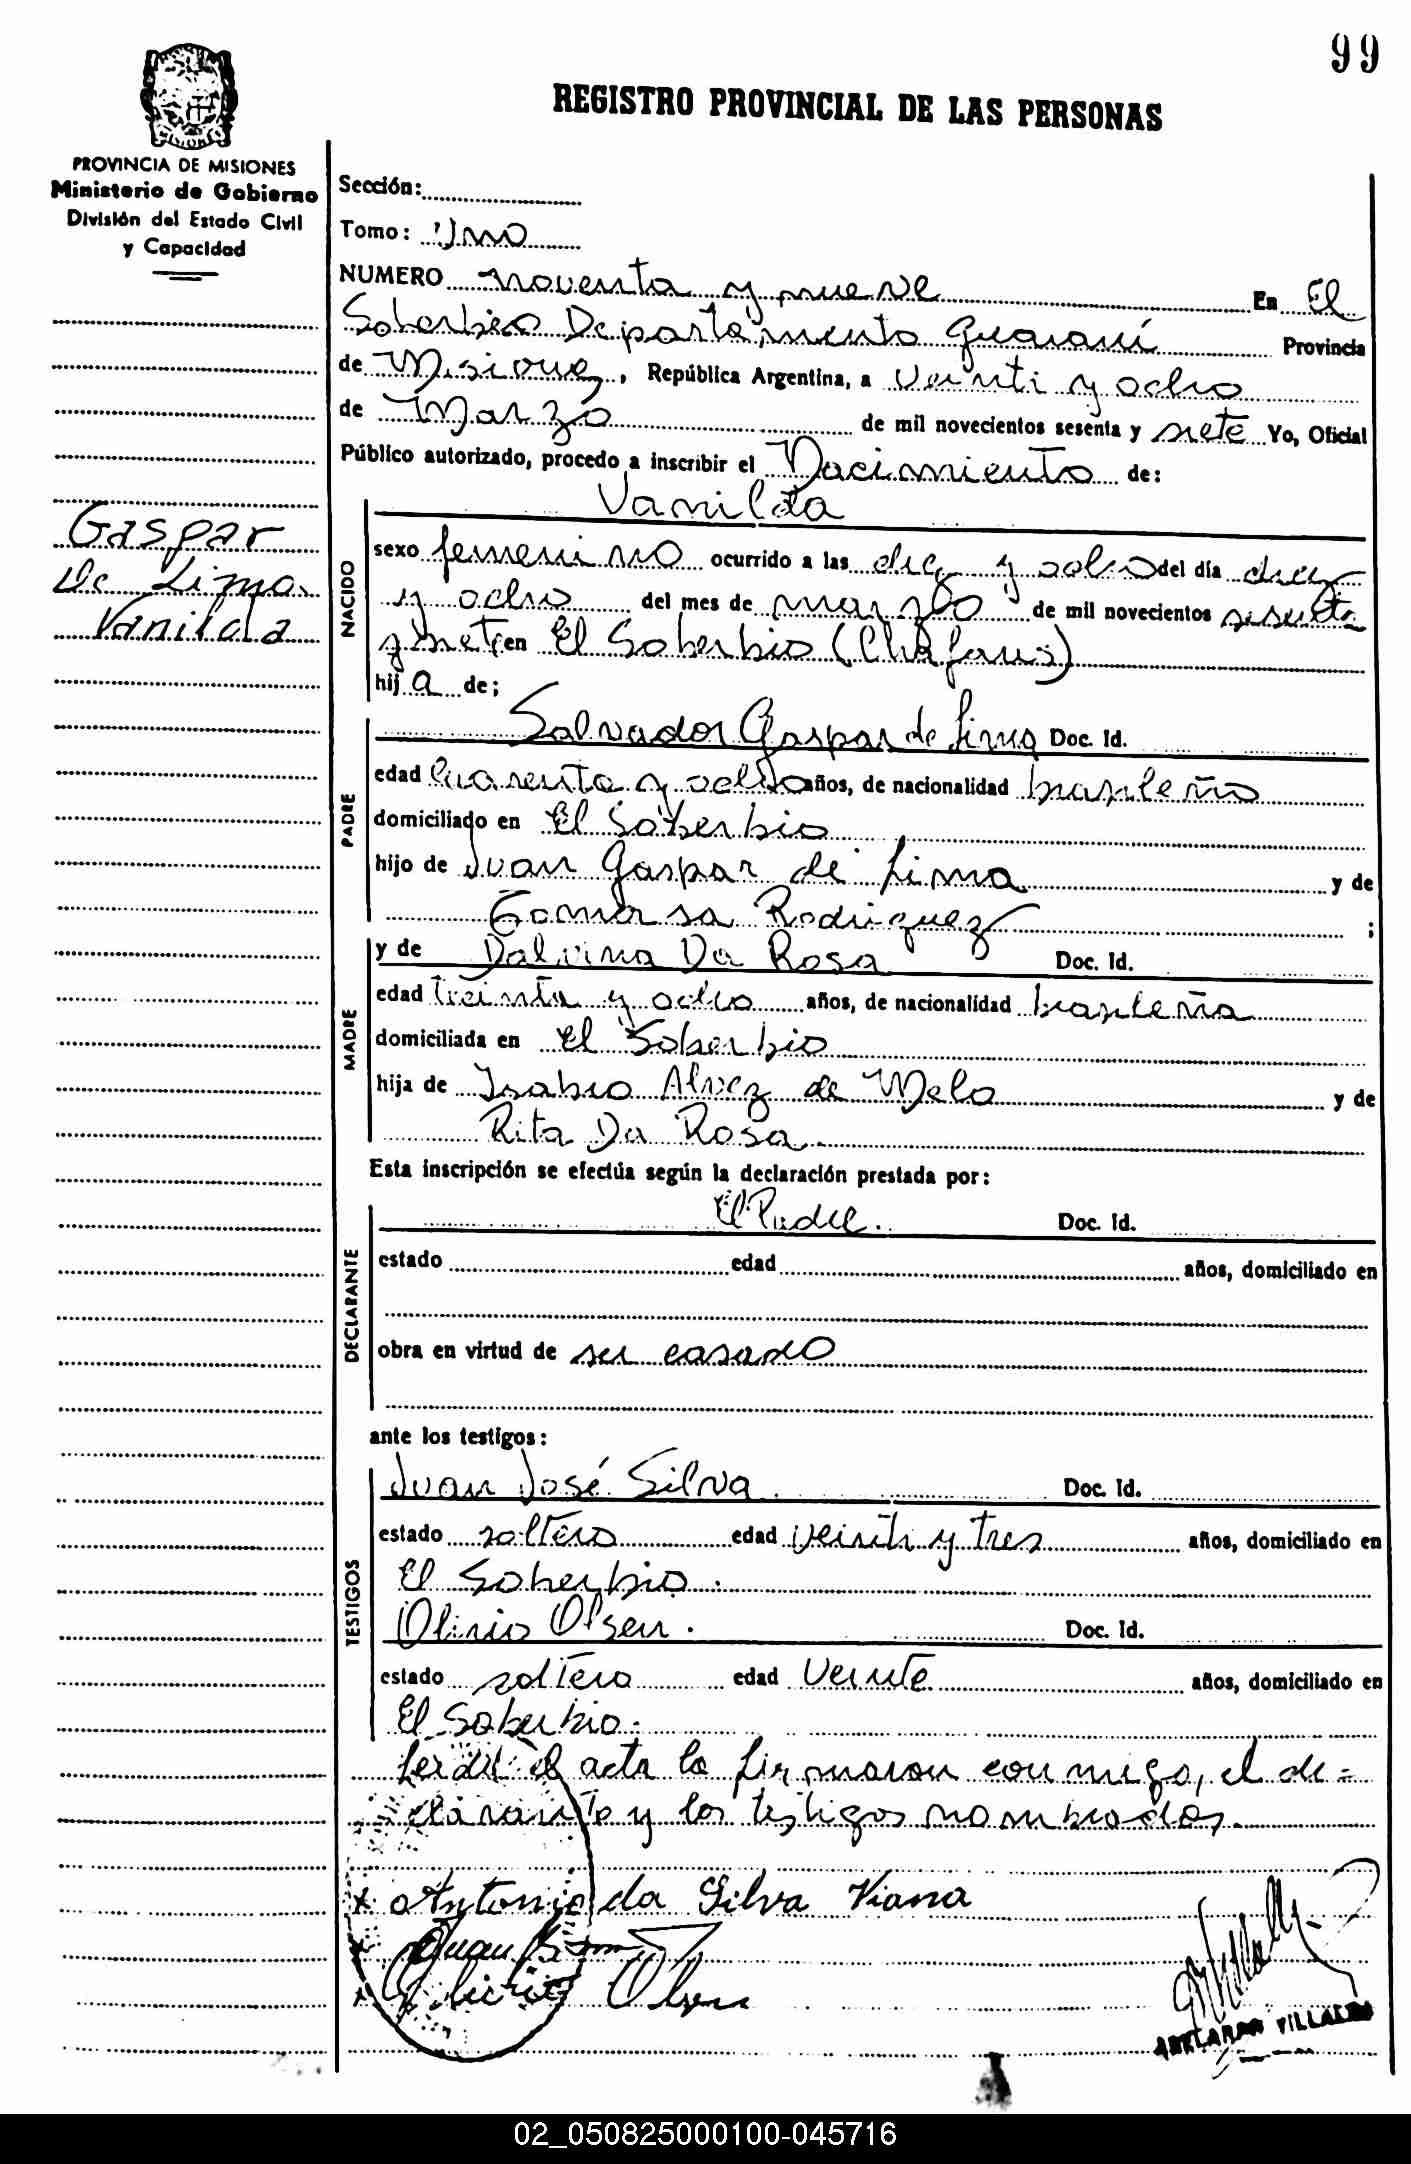 99
REGISTRO PROVINCIAL DE LAS PERSONAS
PROVINCIA DE MISIONES
Ministerio de Gobierno
División del Estado Civil
y Capacidad
Gaspar
De Lima
Vanilda
Sección:
Tomo: Uno
NUMERO noventa y nueve En El
Soberbio Departamento Guaraní Provincia
de Misiones, República Argentina, a veinti y ocho
de Marzo de mil novecientos sesenta y siete Yo, Oficial
Público autorizado, procedo a inscribir el Nacimiento de:
Vanilda
NACIDO
sexo femenino ocurrido a las diez y ocho del día diez
y ocho del mes de marzo de mil novecientos sesenta
y siete en El Soberbio (Chafariz)
hij a de;
PADRE
Salvador Gaspar de Lima Doc. Id.
edad cuarenta y ocho años, de nacionalidad brasileño
domiciliado en El Soberbio
hijo de Juan Gaspar de Lima y de
Rodriguez ;
MADRE
y de Dalvina Da Rosa Doc. Id.
edad treinta y ocho años, de nacionalidad brasileña
domiciliada en El Soberbio
hija de Alvez de Melo y de
Rita Da Rosa
Esta inscripción se efectúa según la declaración prestada por:
DECLARANTE
El Padre. Doc. Id.
estado edad años, domiciliado en
obra en virtud de ser casado
ante los testigos:
TESTIGOS
Juan José Silva. Doc. Id.
estado soltero edad veinti y tres años, domiciliado en
El Soberbio.
Olirio Olsen. Doc. Id.
estado soltero edad veinte años, domiciliado en
El Soberbio.
Leida el acta la firmaron conmigo, el de=
clarante y los testigos nombrados.
x Antonio da Silva Viana
x Juan
x Olirio Olsen
ABELARDO VILLALBA
02_050825000100-045716